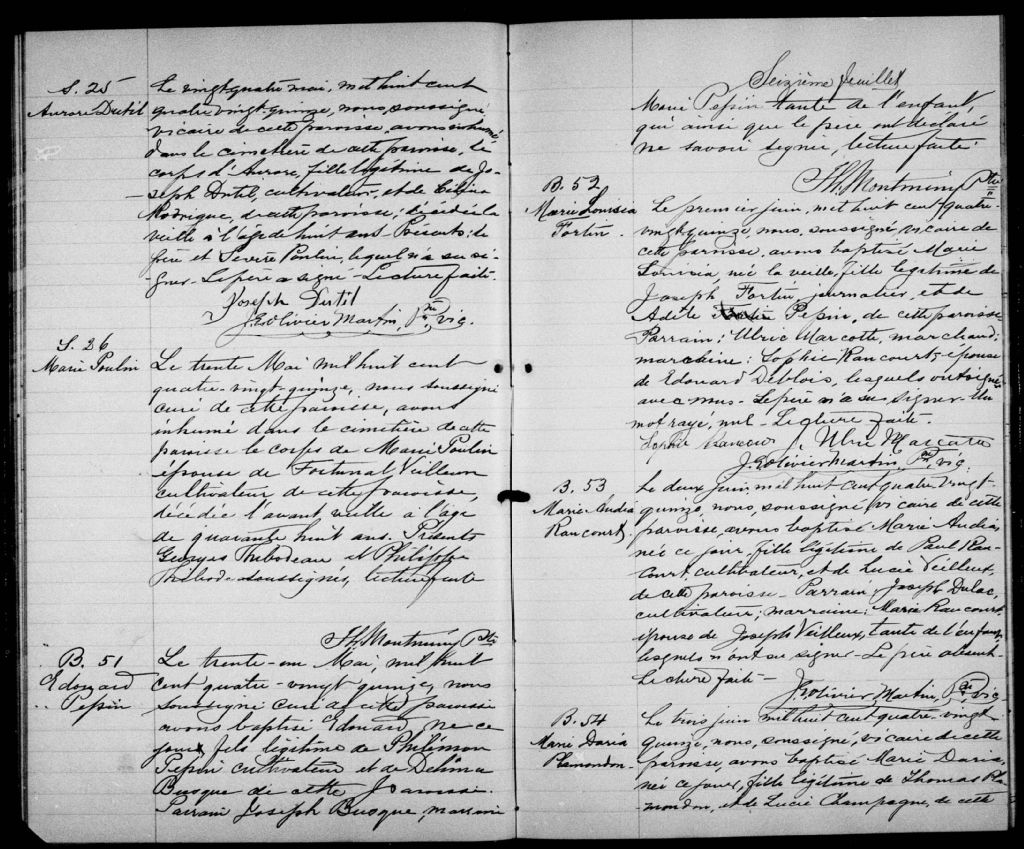 S. 25
Aurore Dutil
Le vingt quatre mai, mil huit cent
quatre vingt quinze, nous, soussigné,
vicaire de cette paroisse, avons inhumé
dans le cimetière de cette paroisse, le
corps d'Aurore, fille légitime de Jo-
seph Dutil, cultivateur, et de
Rodrigue, de cette paroisse; décédée la
veille à l'âge de huit ans. Présents: le
père et Sévère Poulin, lequel n'a su si-
gner. Le père a signé. Lecture faite.
Joseph Dutil
J. E. Olivier Martin, Ptre, vic.
S. 26
Marie Poulin
Le trente Mai mil huit cent
quatre-vingt-quinze, nous soussigné
curé de cette paroisse, avons
inhumé dans le cimetière de cette
paroisse le corps de Marie Poulin
épouse de Fortunat Veilleux
cultivateur de cette paroisse,
décédée l'avant veille à l'age
de quarante huit ans. Présents
Georges Thibodeau et Philippe
Thibode soussignés, lecture faite
Th. Montminy Ptre
B. 51
Edouard
Pepin
Le trente-un Mai, mil huit
cent quatre-vingt quinze, nous
soussigné curé de cette paroisse
avons baptisé Edouard, né ce
jour fils légitime de Philémon
Pepin cultivateur et de Delima
Busque de cette paroisse.
Parrain Joseph Busque, marraine
Seizième feuillet
Marie Pepin tante de l'enfant,
qui ainsi que le père ont déclaré
ne savoir signer, lecture faite.
Th. Montminy Ptre
B. 52
Marie Louisia
Fortin.
Le premier juin, mil huit cent quatre-
vingt quinze, nous, soussigné, vicaire de
cette paroisse, avons baptisé Marie
Louisia née la veille, fille légitime de
Joseph Fortin, journalier, et de
Adèle Pepin, de cette paroisse.
Parrain: Ulric Marcotte, marchand;
marraine: Sophie Rancourt, épouse
de Edouard Deblois, lesquels ont signé
avec nous. Le père n'a su signer. Un
mot rayé, nul. Lecture faite.
Sophie Rancour Ulric Marcotte
J. E. Olivier Martin, Ptre, vic.
B. 53
Marie Andia
Rancourt.
Le deux juin, mil huit cent quatre vingt-
quinze, nous, soussigné, vicaire de cette
paroisse, avons baptisé Marie Andia,
née ce jour, fille légitime de Paul Ran-
court, cultivateur, et de Lucie Veilleux,
de cette paroisse. Parrain, Joseph Dulac,
cultivateur; marraine: Marie Rancourt,
épouse de Joseph Veilleux, tante de l'enfant,
lesquels n'ont su signer. Le père absent.
Lecture faite.
J. E. Olivier Martin, Ptre, vic.
B. 54
Marie Daria
Plamondon.
Le trois juin mil huit cent quatre-vingt
quinze, nous, soussigné, vicaire de cette
paroisse, avons baptisé Marie Daria
née ce jour, fille légitime de Thomas Pla-
mondon, et de Lucie Champagne, de cette